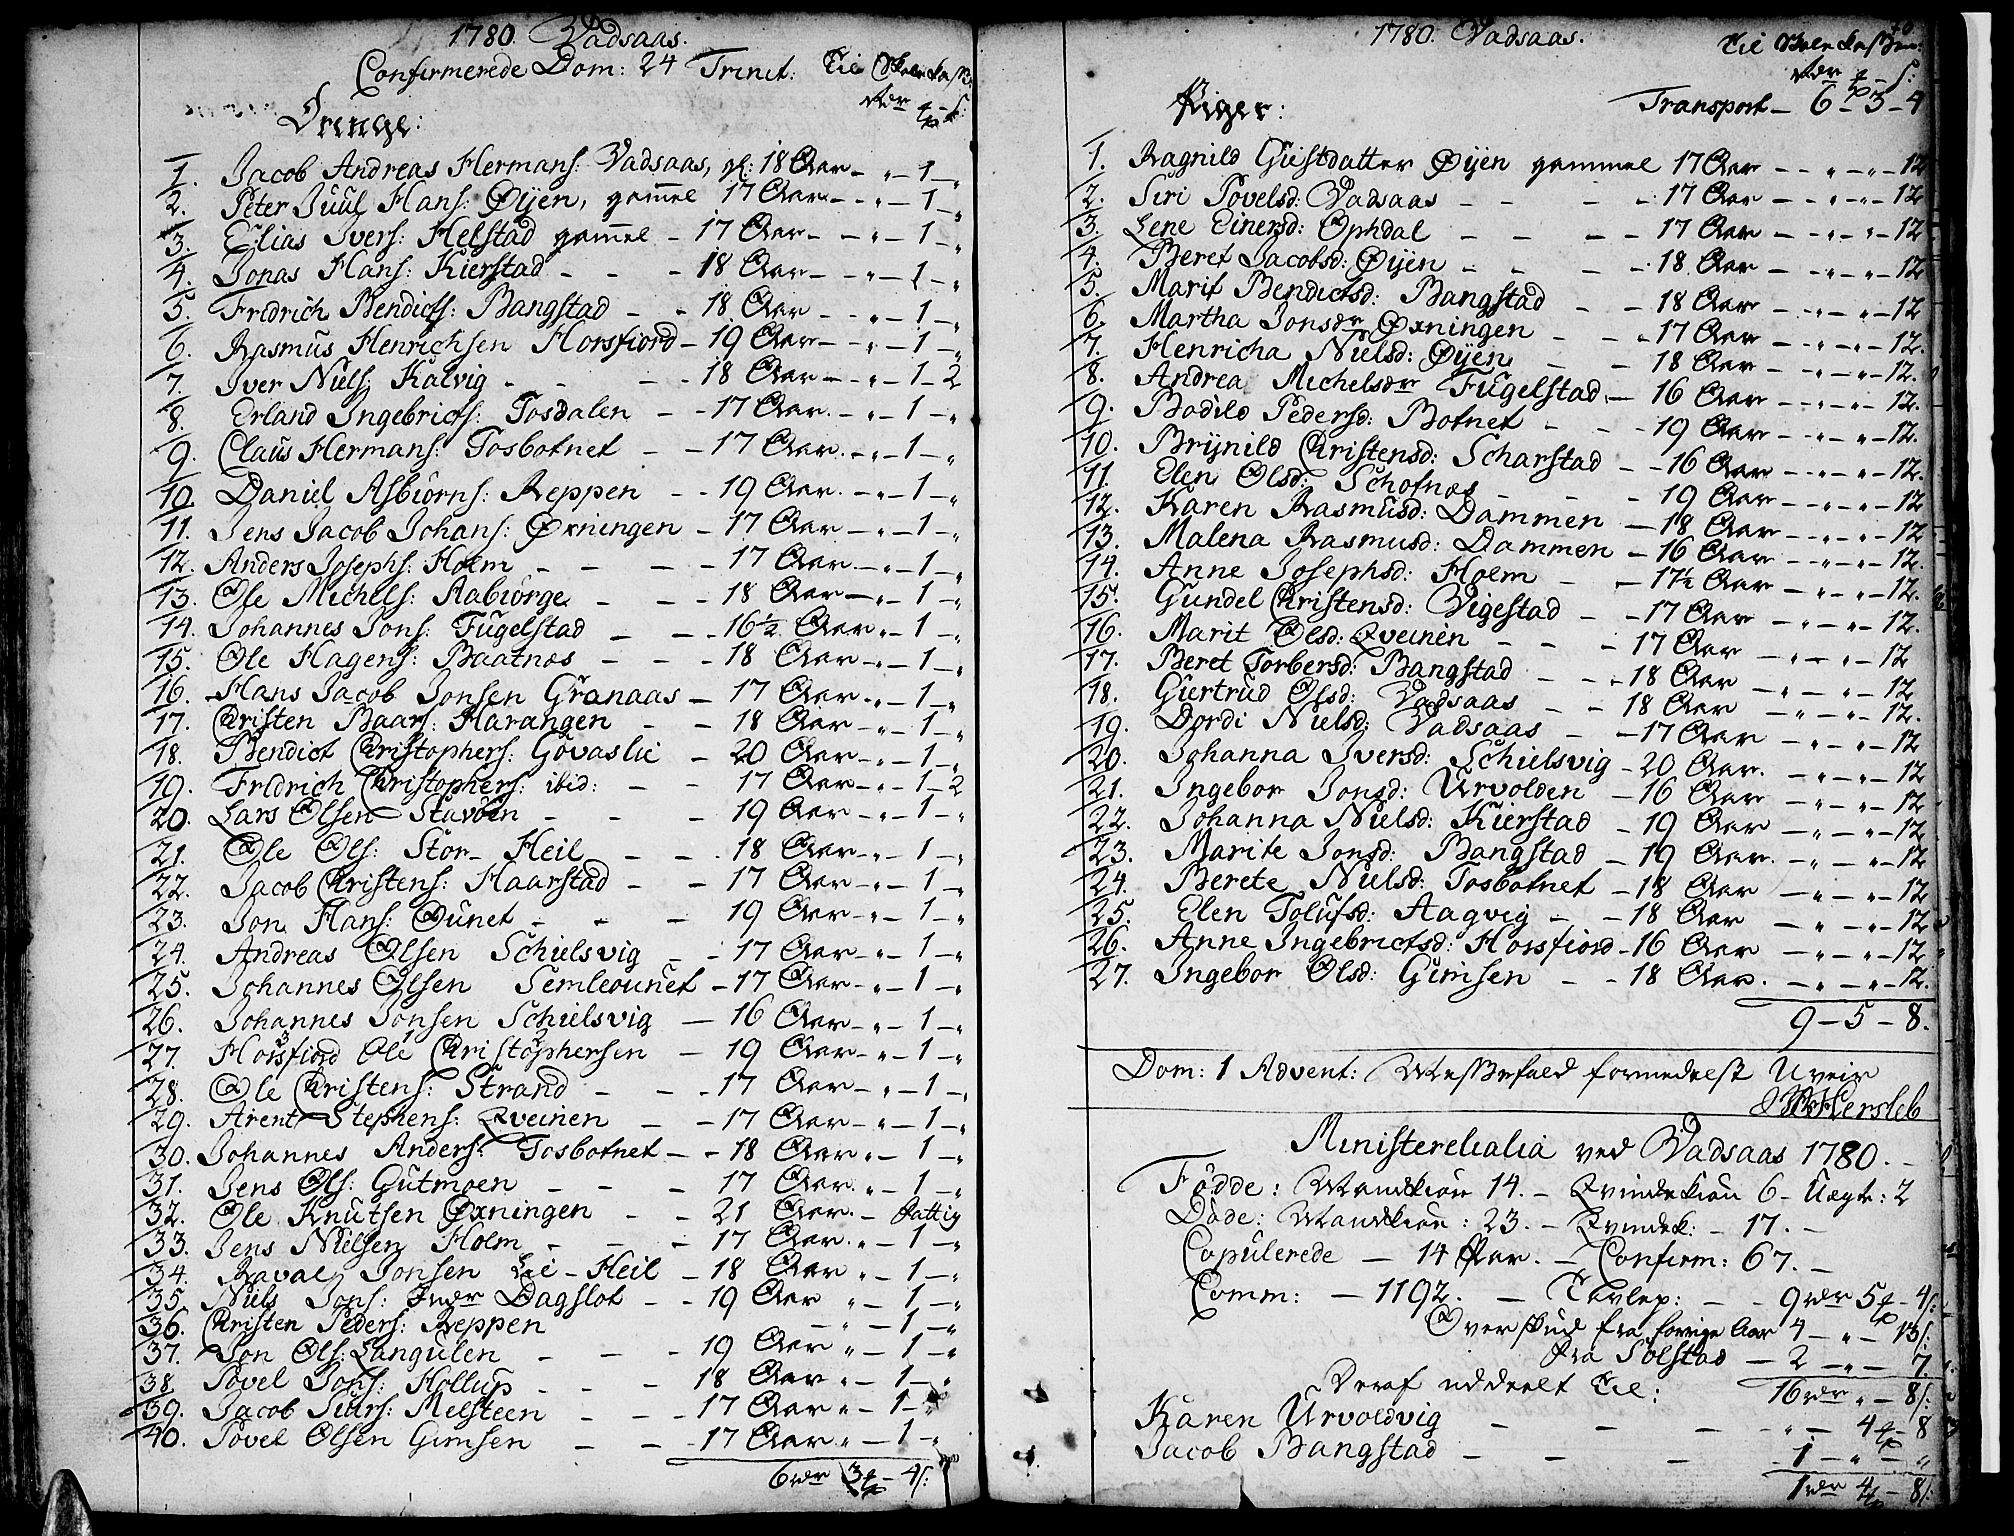 1780. Vadsaas.
Confirmerede Dom: 24 Trinit: til Skole Cassen
rdr ort - s:
Drenge:
1. Jacob Andreas Hermans: Vadsaas, gl: 18 Aar - „ - 1 - „
2. Peter Juul Hans: Øyen, gammel 17 Aar - - „ - 1 - „
3. Elias Ivers: Helstad gammel - 17 Aar - - „ - 1 - „
4. Jonas Hans: Kierstad - - - 18 Aar - - „ - 1 - „
5. Fridrich Bendicts: Bangstad - - 18 Aar - - „ - 1 - „
6. Rasmus Henrichsen Horsfiord - 19 Aar - - „ - 1 - „
7. Iver Niels: Kalvig - - - 18 Aar - - „ - 1 - 2
8. Erland Ingebricts: Tosdalen - - 17 Aar - „ - 1 - „
9. Claus Hermans: Tosbotnet - - 17 Aar - „ - 1 - „
10. Daniel Asbiörns: Reppen - - 19 Aar - „ - 1 - „
11. Jens Jacob Johans: Øxningen - 17 Aar - „ - 1 - „
12. Anders Josephs: Holm - - - - 17 Aar - „ - 1 - „
13. Ole Michels: Aabiörge - - - 18 Aar - „ - 1 - „
14. Johannes Jons: Fugelstad - - - 16½ Aar „ - 1 - „
15. Ole Hagens: Baatnæs - - - 18 Aar - „ - 1 - „
16. Hans Jacob Jonsen Granaas - 17 Aar - „ - 1 - „
17. Christen Baars: Harangen - - 18 Aar - „ - 1 - „
18. Bendict Christophers: Gövaslie - 20 Aar - „ - 1 - „
19. Fridrich Christophers: ibid: - - 17 Aar - „ - 1 - 2
20. Lars Olsen Stavöen - - - 19 Aar - „ - 1 - „
21. Ole Ols: Stor-Heil - - - 18 Aar - „ - 1 - „
22. Jacob Christens: Haarstad - - 17 Aar - „ - 1 - „
23. Jon Hans: Ounet - - - 19 Aar - „ - 1 - „
24. Andreas Olsen Schielsvig - - 17 Aar - „ - 1 - „
25. Johannes Olsen Semleounet - 17 Aar - „ - 1 - „
26. Johannes Jonsen Schielsvig - 16 Aar - „ - 1 - „
27. Horsfiord Ole Christophersen - 19 Aar - „ - 1 - „
28. Ole Christens: Strand - - - 17 Aar - „ - 1 - „
29. Arent Stephens: Qveinen - - 17 Aar - „ - 1 - „
30. Johannes Anders: Tosbotnet - - 18 Aar „ - 1 - „
31. Jens Ols: Gutmoen - - - 17 Aar „ - 1 - „
32. Ole Knutsen Øxningen - - 21 Aar - fattig
33. Jens Nielsen Holm - - - 17 Aar „ - 1 - „
34. Raval Jonsen Lie-Heil - 18 Aar „ - 1 - „
35. Niels Jons: Indr Dagslot - - 19 Aar „ - 1 - „
36. Christen Peders: Reppen - „ - 1 - „
37. Jon Ols: Langulen - - - 19 Aar „ - 1 - „
38. Povel Jons: Hollup - - - 18 Aar „ - 1 - „
39. Jacob Siurs: Melsteen - - - 17 Aar „ - 1 - „
40. Povel Olsen Gimsen - - - 17 Aar „ - 1 - „
6 rdr 3 ort - 4 s:
1780. Vadsaas.
til Skole Cassen:
rdr ort - s:
Piger: Transport - 6 - 3 - 4
1. Ragnild Giestdatter Øyen gammel 17 Aar - - „ - „ - 12
2. Siri Povelsd: Vadsaas - - - - 17 Aar - - „ - „ - 12
3. Lene Einersd: Ophdal - - - - 17 Aar - - „ - „ - 12
4. Beret Jacobsd: Øyen - - - - 18 Aar - - „ - „ - 12
5. Marit Bendictsd: Bangstad - - 18 Aar - - „ - „ - 12
6. Martha Jonsdr Øxningen - - 17 Aar - - „ - „ - 12.
7. Henricha Nielsd: Øyen - - 18 Aar - - „ - „ - 12.
8. Andrea Michelsdr Fugelstad - 16 Aar - - „ - „ - 12.
9. Bodild Pedersd: Botnet - - - 19 Aar - - „ - „ - 12.
10. Brynild Christensd: Scharstad - - 16 Aar - - „ - „ - 12.
11. Elen Olsd: Schotnæs - - - 19 Aar - - „ - „ - 12
12. Karen Rasmusd: Dammen - 18 Aar - - „ - „ - 12
13. Malena Rasmusd: Dammen - 16 Aar - - „ - „ - 12.
14. Anne Josephsd: Holm - - 17½ Aar - - „ - „ - 12.
15. Gundel Christensd: Vigestad - - 17 Aar - „ - „ - 12.
16. Marit Olsd: Qveinen - - - 17 Aar - „ - „ - 12
17. Beret Torbersd: Bangstad - - 18 Aar - „ - „ - 12
18. Giertrud Olsd: Vadsaas - - 18 Aar - „ - „ - 12.
19. Dordi Nielsd: Vadsaas - - 17 Aar - „ - „ - 12
20. Johanna Iversd: Schielsvig - 20 Aar. - „ - „ - 12
21. Ingebor Jonsd: Urvolden - 16 Aar - „ - „ - 12
22. Johanna Nielsd: Kierstad - 19 Aar - „ - „ - 12
23. Marite Jonsd: Bangstad - 19 Aar. - „ - „ - 12
24. Berete Nielsd: Tosbotnet - 18 Aar - „ - „ - 12
25. Elen Tolufsd: Aagvig - - 18 Aar - „ - „ - 12
26. Anne Ingebrictsd: Horsfiord - 16 Aar - „ - „ - 12
27. Ingebor Olsd: Gimsen - - 18 Aar. - „ - „ - 12.
9 - 5 - 8.
Dom: 1 Advent: Messefald formedelst Uveir
Hersleb
Ministerelialia ved Vadsaas 1780.
Födde: Mandkiön 14. - Qvindekiön 6 - Uægte: 2
Döde: Mandkiön: 23. - Qvindek: - 17. -
Copulerede - 14 Par. - Confirm: 67. -
Comm: - 1192. - Tavlep: - - 9 rdr 5 ort - 4 s:
Overskud fra forrige Aar 4 - „ - 13 s:
fra Solstad - 2 - „ - 7.
16 rdr „ - 8 s:
Deraf uddeelt til:
Karen Urvoldvig - - - - „ - 4 ort - 8
Jacob Bangstad - - - - 1 - „ - „
1 rdr 4 ort - 8 s: